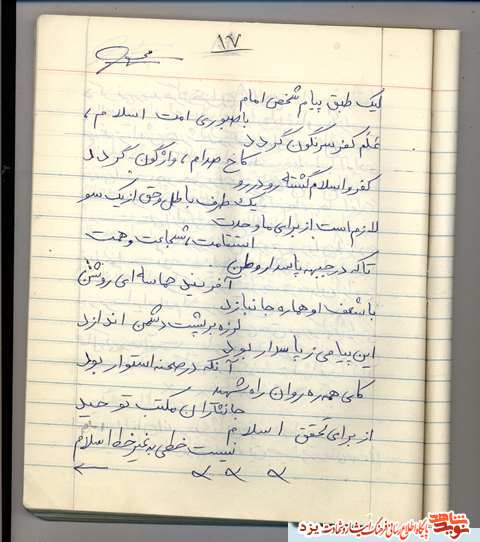 ۸۷
لیک طبق پیام شخص امام
با صبوری امت اسلام،
عَلَم کفر سرنگون گردد
کاخ صدام، واژگون گردد
کفر و اسلام گشته رو در رو
یک طرف باطل و حق از یک سو
لازم است از برای ما وحدت
استقامت، شجاعت و همت
تا که در جبهه پاسدار وطن
آفریند حماسه ای روشن
با شعف او هماره جانبازد
لرزه بر پشت دشمن اندازد
این پیامی ز پاسدار بود
آنکه در صحنه استوار بود
کای همه رهروان راه شهید
جانثاران مکتب توحید
از برای تحقق اسلام
نیست خطی به غیر خط اسلام
نوید شاهد
پایگاه اطلاع رسانی فرهنگ ایثار و شهادت یزد